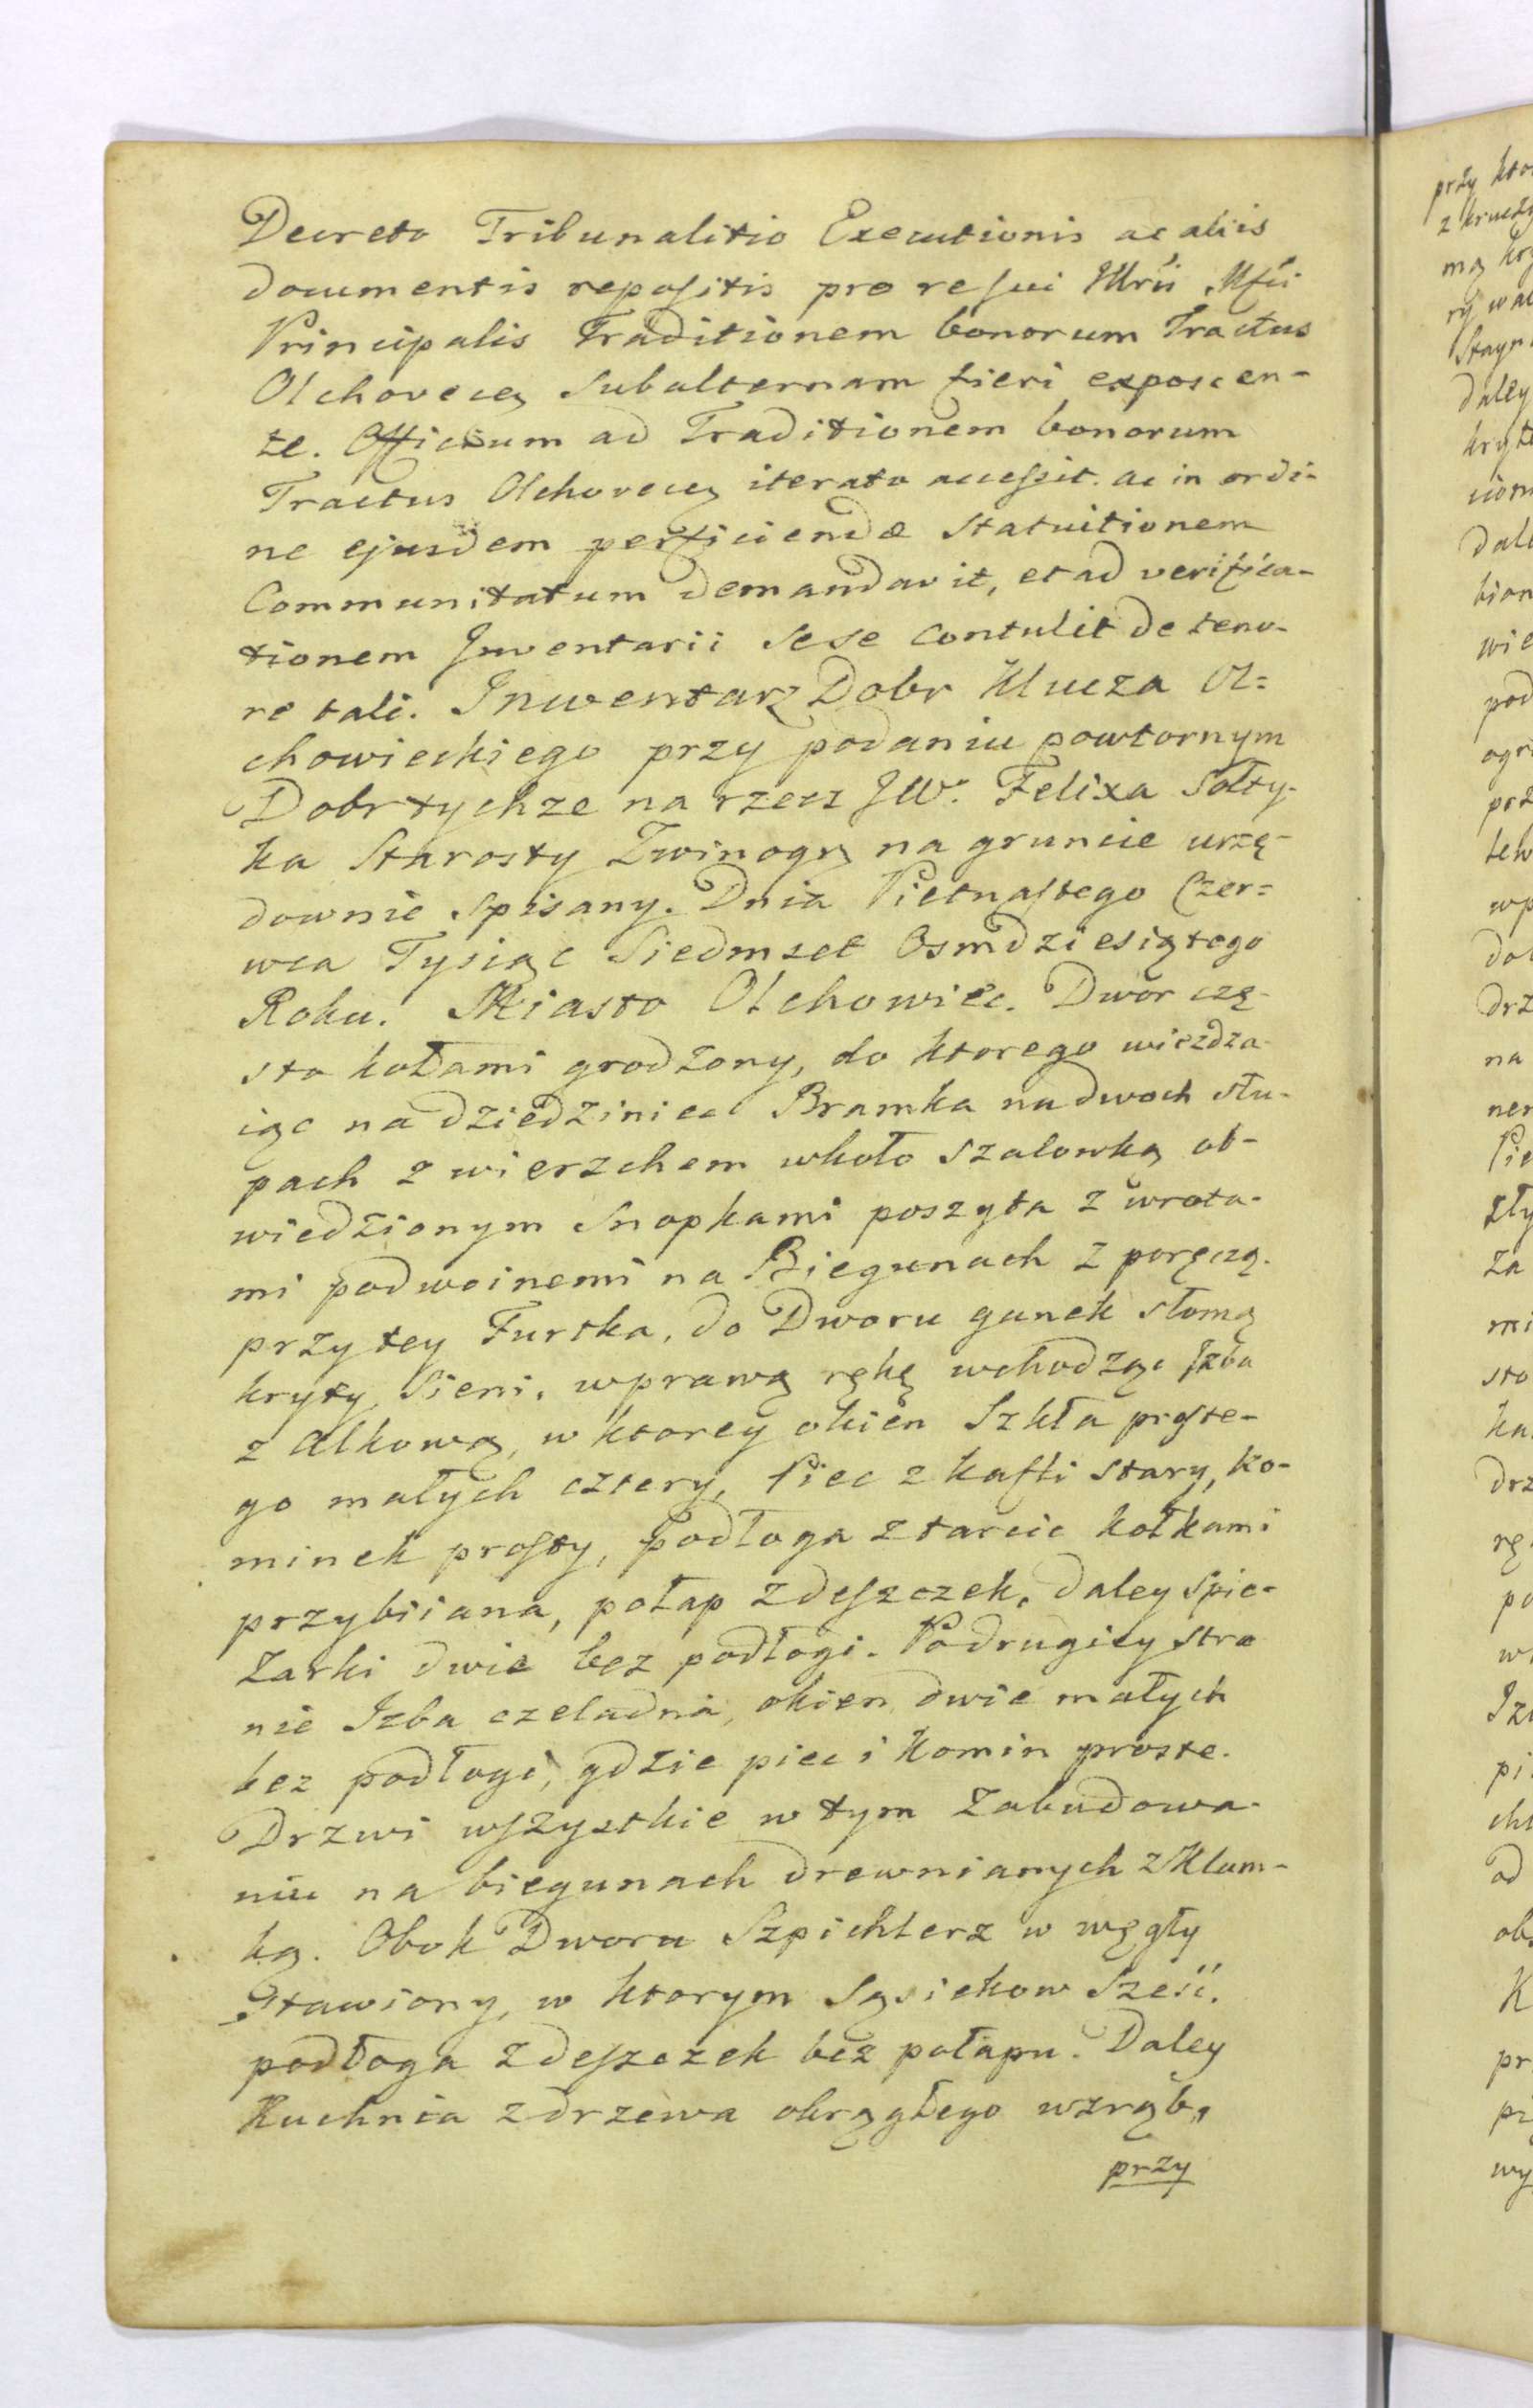 Decreto Tribunalitio Executionis ac aliis
documentis repositis pro re sui Illrii Mfci
Principalis Traditionem bonorum Tractus
Olchovecen Subalternam fieri exposcen-
te. Officium ad Traditionem bonorum
Tractus Olchovecen iterato accessit. ac in ordi-
ne ejusdem perficiendæ Statuitionem
Communitatum demandavit, et ad verifica-
tionem Inventarii sese Contulit de teno-
re tali. Inwentarz Dobr Klucza Ol=
chowieckiego przy podaniu powtornym
Dobr tychze na rzecz JW. Felixa Sołty-
ka Starosty Zwinogr na gruncie urzę-
downie Spisany. Dnia Pietnastego Czer=
wca Tysiąc Siedmset Osmdziesiątego
Roku. Miasto Olchowiec. Dwor czę-
sto kołami grodzony, do ktorego wiezdza-
iąc na dziedziniec Bramka na dwoch słu-
pach z wierzchem wkoło szalowką ob-
wiedzionym Snopkami poszyta z wrota-
mi podwoinemi na Biegunach z poręczą.
przy tey Furtka, do Dworu ganek słomą
kryty, Sieni, w prawą rękę wchodząc Izba
z Alkową, w ktorey okien Szkła proste-
go małych cztery, Piec z kafli stary, ko-
minek prosty, podłoga z tarcic kołkami
przybiiana, połap z deszczek, daley Spic-
zarki dwie bez podłogi. Po drugiey stro
nie Izba czeladna, okien dwie małych
bez podłogi, gdzie piec i komin proste.
Drzwi wszystkie w tym Zabudowa-
niu na biegunach drewnianych z Klam-
ką. Obok Dworu Szpichlerz w węgły
Stawiony, w ktorym Sąsiekow Sześć.
podłoga z deszczek bez połapu. Daley
Kuchnia z drzewa okrągłego w zrąb,
przy